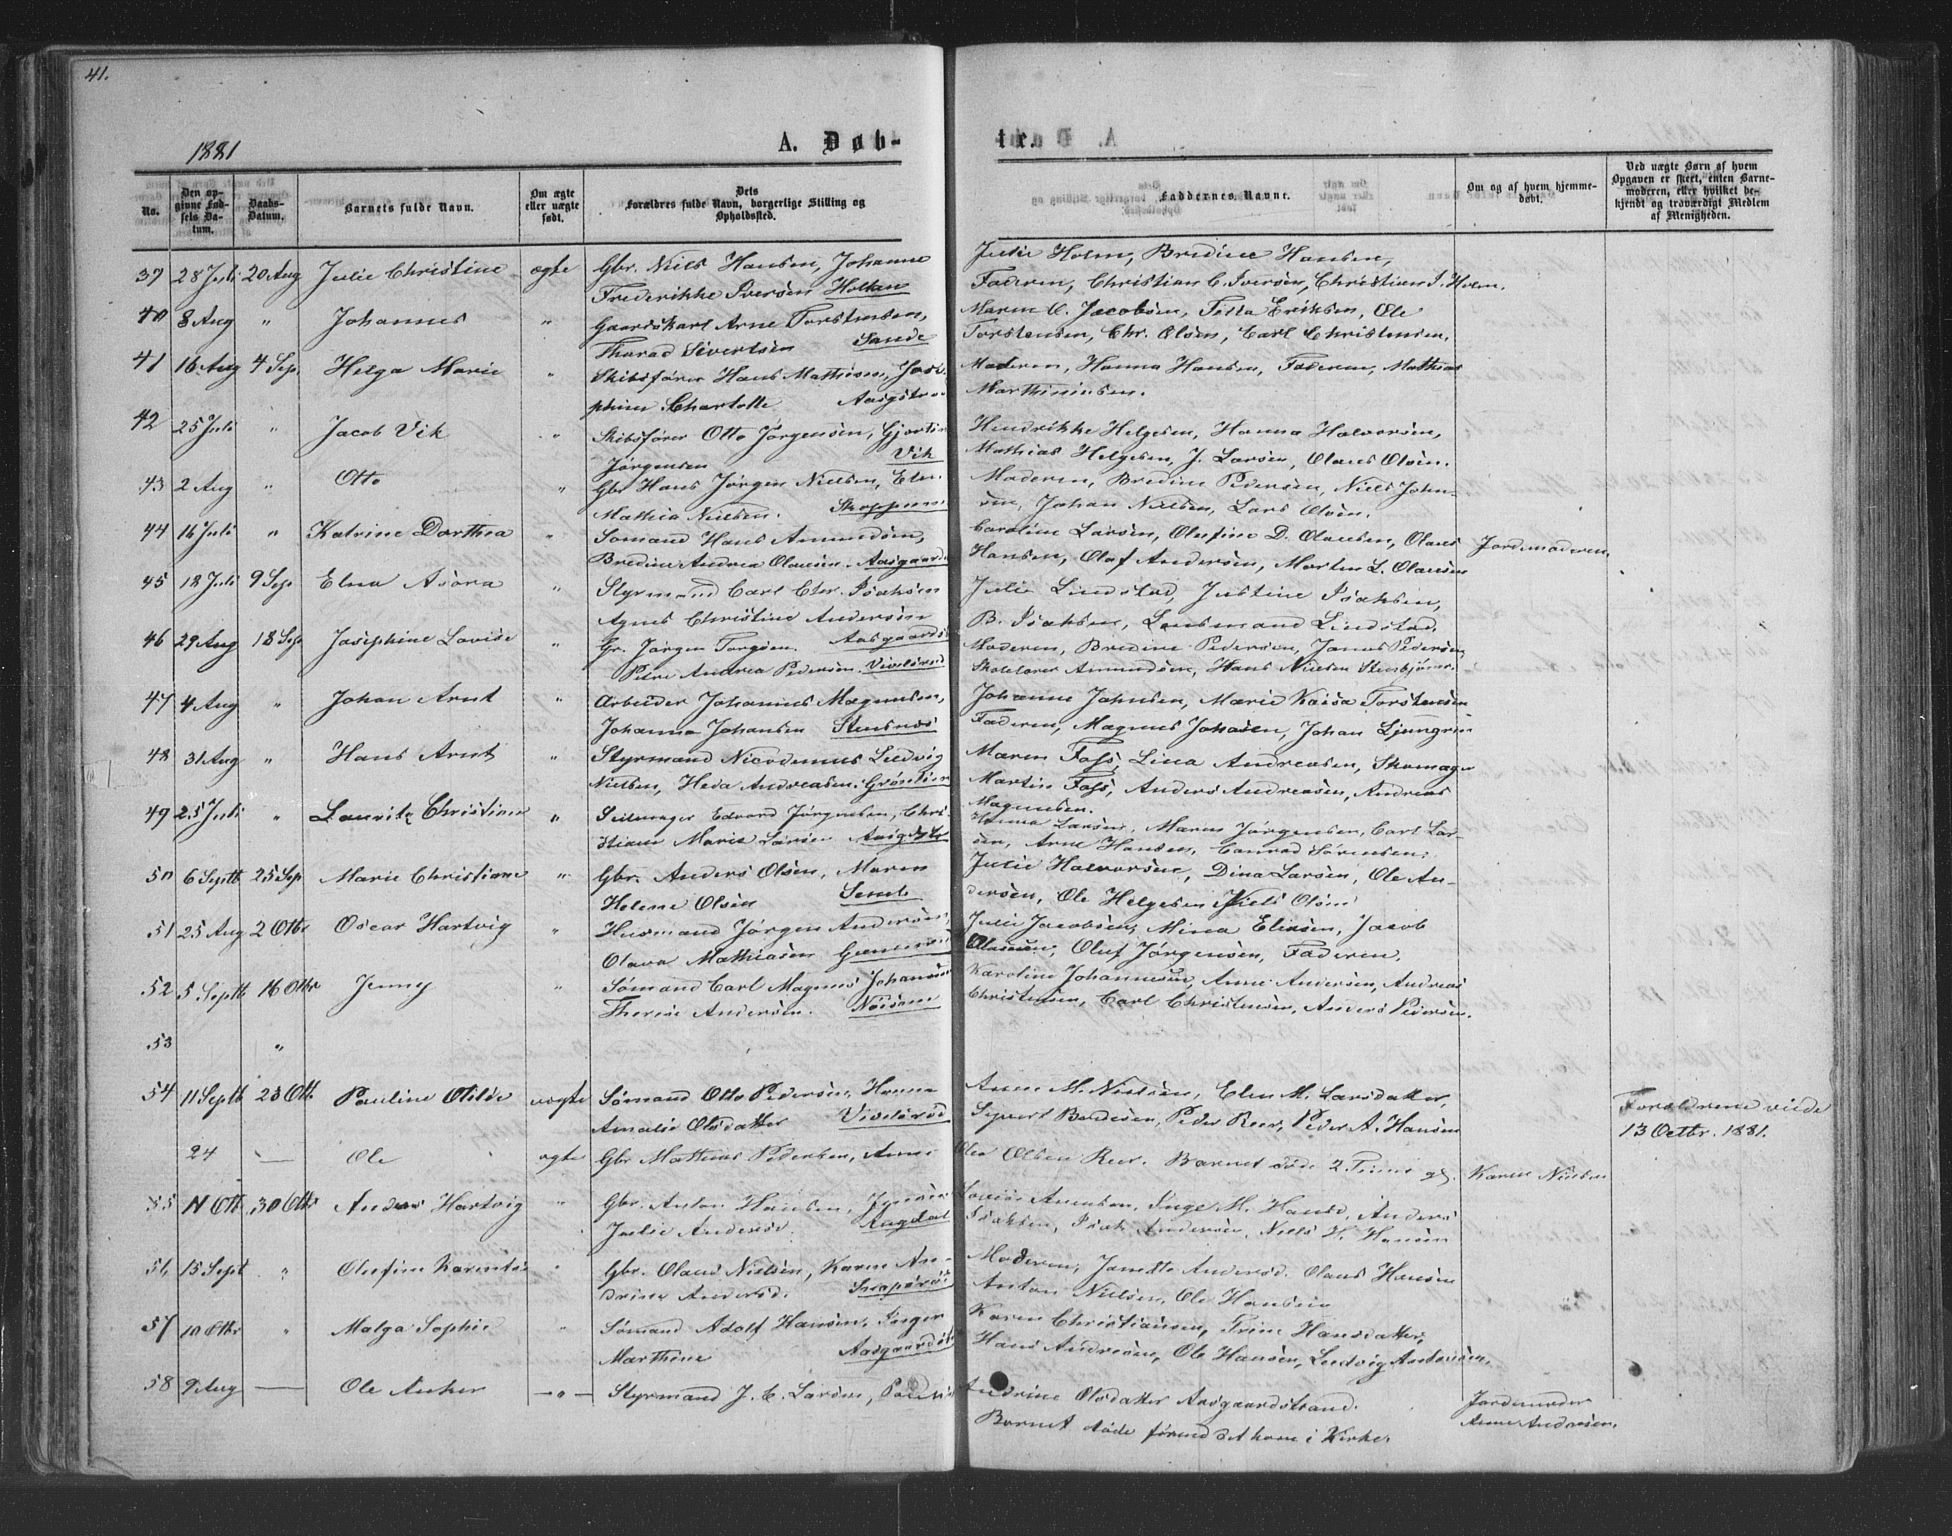 41.
1881
A. Døb-
te.
No.
Den op-
givne Fød-
sels Da-
tum.
Daabs-
Datum.
Barnets fulde Navn.
Om ægte
eller uægte
født.
Dets
Forældres fulde Navn, borgerlige Stilling og
Opholdssted.
Faddernes Navne.
Om og af hvem hjemme-
døbt.
Ved uægte Børn af hvem
Opgaven er skeet, enten Barne-
moderen, eller hvilket be-
kjendt og troværdigt Medlem
af Menigheden.
39 28 Juli 20 Aug Julie Christine ægte Gbr. Niels Hansen, Johanne Julie Holm, Bredine Hansen,
Frederikke Iversen Holtan Faderen, Christian C. Iversen, Christian J. Holm.
40 8 Aug " Johannes " Gaardskarl Arne Torstensen, Maren C. Jacobsen, Eriksen, Ole
Thorad Sivertsen Sande Torstensen, Chr. Olsen, Carl Christensen.
41 16 Aug 4 Sep. Helga Marie " Skibsfører Hans Mathisen, Jose- Moderen, Hanna Hansen, Faderen, Mathias
phine Charlotte Aasgstr Marthiniusen.
42 25 Juli " Jacob Vik " Skibsfører Otto Jørgensen, Hendrikke Helgesen, Hanna Halvorsen,
Jørgensen Vik Mathias Helgesen, J. Larsen, Olaus Olsen.
43 2 Aug " Otto " Gbr Hans Jørgen Nielsen, Elen Moderen, Bredine Pedersen, Niels John-
Mathia Nielsen. Skoppum sen, Johan Nielsen, Lars Olsen.
44 16 Juli " Katrine Dorthea " Sømand Hans Amundsen, Caroline Larsen, Olufine D. Olausen, Olaus Jordemoderen
Bredine Andrea Olausen. Aasgaards Hansen, Olaf Andersen, Morten L. Olausen
45 18 Juli 9 Sep Elna Asora " Styrmand Carl Chr. Isaksen Julie Lindstad, Justine Isaksen,
Agnes Christine Andersen B. Isaksen, Lensmand Lindstad.
46 29 Aug 18 Sep Josephine Lovise " Gr. Jørgen Torgsen. Aasgaards Moderen, Bredine Pedersen, Janus Pedersen,
Petre Andrea Pedersen. Vivelsrød Skolelærer Amundsen, Hans Nielsen Stenbjørn
47 4 Aug " Johan Arnt " Arbeider Johannes Magnusen, Johanne Johnsen, Marie Kaisa Torstensen
Johanna Johansen Stensnes Faderen, Magnus Johasen, Johan Ljungrin
48 31 Aug " Hans Arnt " Styrmand Nicodemus Ludvig Maren Foss, Lina Andreasen, Skomager
Nielsen, Heda Andreasen. Martin Foss, Anders Andreasen, Andreas
Magnusen.
49 25 Juli " Lauritz Christian " Seilmager Edvard Jørgensen, Chri- Hanna Larsen, Maren Jørgensen, Carl Lar-
stiane Marie Larsen sen, Arne Hansen, Conrad Sørensen.
50 6 Septb 25 Sep Marie Christiane " Gbr. Anders Olsen, Maren Julie Halvorsen, Dina Larsen, Ole An-
Helene Olsen Semb dersen, Ole Helgesen, Niels Olsen
51 25 Aug 2 Otbr Oscar Hartvig " Husmand Jørgen Andersen, Julie Jacobsen, Mina Eliasen, Jacob
Olava Mathiasen Olausen, Oluf Jørgensen, Faderen.
52 5 Septb 16 Otbr Jenny " Sømand Carl Magnus Johansen Karoline Johannesen, Anne Andersen, Andreas
Therese Andersen. Christensen, Carl Christensen, Anders Pedersen.
53 "
54 11 Septb 23 Otb. Pauline Otilie uægte Sømand Otto Pedersen, Hanna Anne M. Nielsen, Elen M. Larsdatter,
Amalie Olsdatter Vivelsrød Syvert Berdesen, Peder Reer, Peder A. Hansen
Forældrene viede
13 Octbr. 1881.
24 — Ole ægte Gbr Mathias Pedersen, Anne Olea Olsen Reer. Barnet døde 2 Time gl. Karen Nielsen
55 11 Otb 30 Otbr Anders Hartvig " Gbr. Anton Hansen, Lovise Inge M. Hansd, Anders
Julie Andersd. Isaksen, Isak Andersen, Niels H. Hansen
56 15 Sept " Olufine " Gbr. Olaus Nielsen, Karen An- Moderen, Janette Andersd. Olaus Hansen
Andersd. Anton Nielsen, Ole Hansen
57 10 Otbr " Malga Sophie " Sømand Adolf Hansen, Inger Karen Christiansen, Trine Hansdatter,
Marthine Aasgaards Hans Andresen, Ole Hansen, Ludvig Andersen.
58 9 Aug — Ole Anker —"— Styrmand J. C. Larsen, Andrine Olsdatter Aasgaardstrand. Jordemoder
Barnet døde førend det kom i Kirke. Anne Andersen.